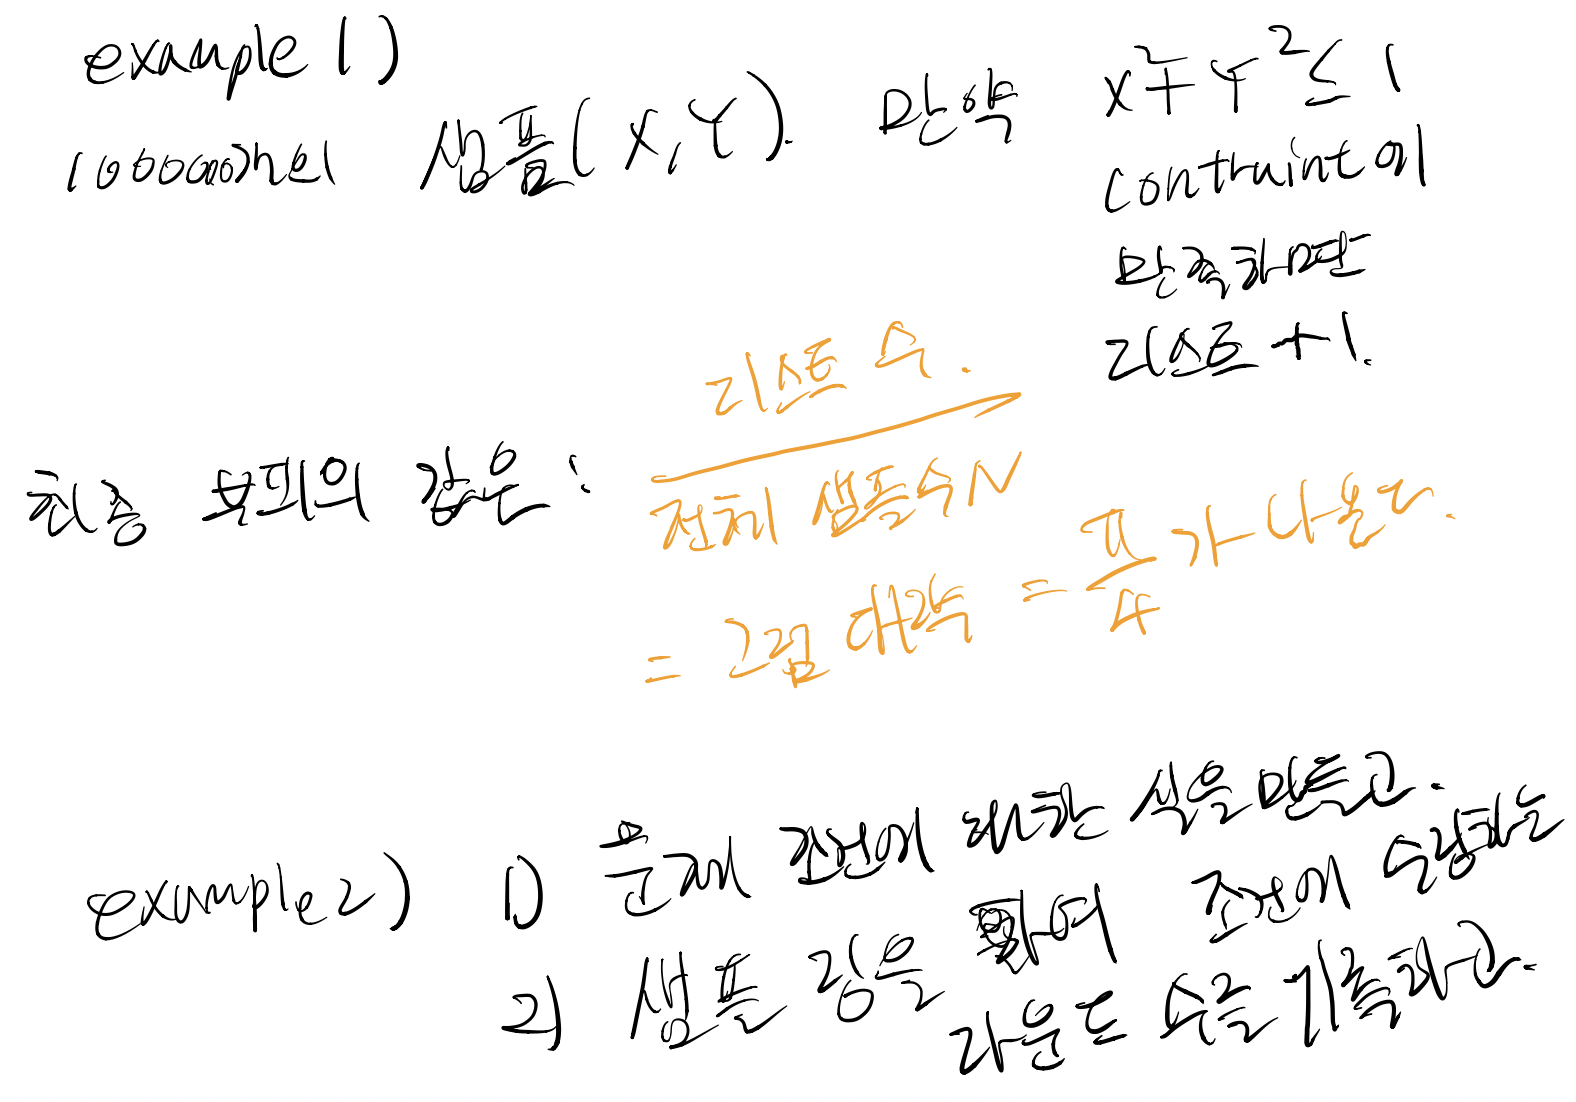 example 1)
100000개의 샘플(X,Y). 만약 X²+Y²≤1
contraint에
만족하면
리스트 +1.
최종 부피의 값은 : 리스트 수.
전체 샘플수 N
= 그럼 대략 = π/4 가 나온다.
example 2) 1) 문제 조건에 대한 식을 만들고.
2) 샘플링을 하여 조건에 수렴하는
라운드 수를 기록하고.